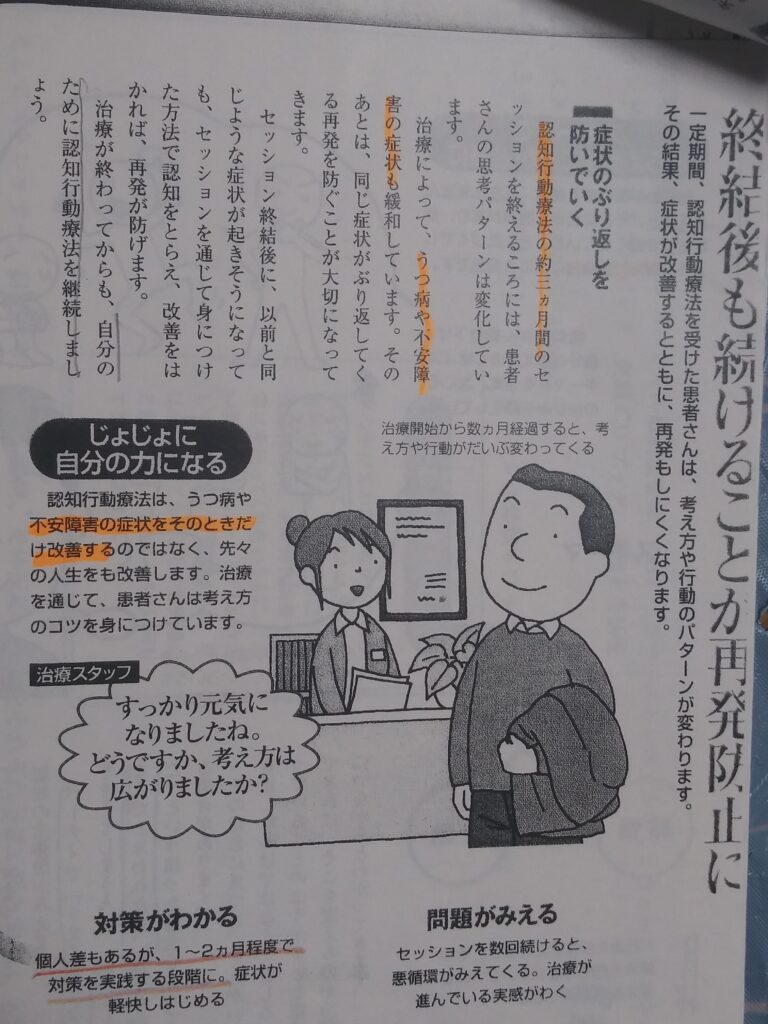 終結後も続けることが再発防止に
一定期間、認知行動療法を受けた患者さんは、考え方や行動のパターンが変わります。
その結果、症状が改善するとともに、再発もしにくくなります。
症状のぶり返しを
防いでいく
認知行動療法の約三ヵ月間のセ
ッションを終えるころには、患者
さんの思考パターンは変化してい
ます。
治療によって、うつ病や不安障
害の症状も緩和しています。その
あとは、同じ症状がぶり返してく
る再発を防ぐことが大切になって
きます。
セッション終結後に、以前と同
じような症状が起きそうになって
も、セッションを通じて身につけ
た方法で認知をとらえ、改善をは
かれば、再発が防げます。
治療が終わってからも、自分の
ために認知行動療法を継続しまし
ょう。
治療開始から数ヵ月経過すると、考
え方や行動がだいぶ変わってくる
じょじょに
自分の力になる
認知行動療法は、うつ病や
不安障害の症状をそのときだ
け改善するのではなく、先々
の人生をも改善します。治療
を通じて、患者さんは考え方
のコツを身につけています。
治療スタッフ
すっかり元気に
なりましたね。
どうですか、考え方は
広がりましたか?
問題がみえる
セッションを数回続けると、
悪循環がみえてくる。治療が
進んでいる実感がわく
対策がわかる
個人差もあるが、1〜2ヵ月程度で
対策を実践する段階に。症状が
軽快しはじめる